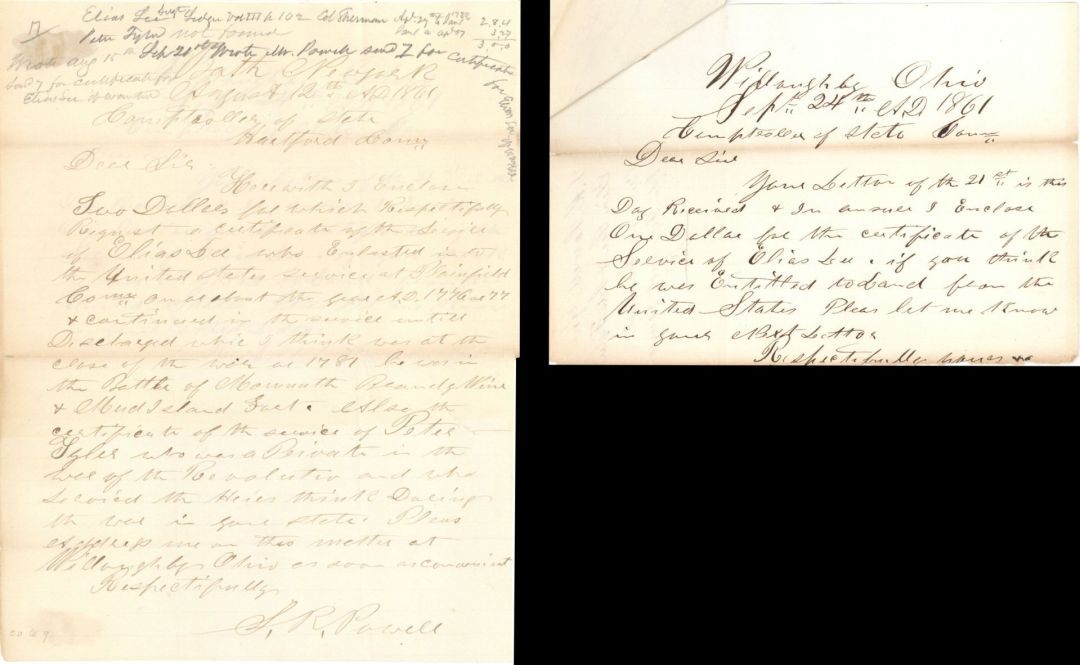 Elias Lee Ledger 102 Col Sherman
Peter Tyler not found
Wrote Aug 15th Sep 21 Wrote Mr. Powell send $1 for Certificate
2,8,4
August 12th AD 1861
Comptroller of State
Hartford Conn
Dear Sir
Herewith I Enclose
Two Dollars for which Respectifully
Request a certificate of the Service
of Elias Lee who Enlisted in to
the United States service at Plainfield
Conn on or about the year A.D. 1776 or 77
& continued in the service untill
Discharged which I think was at the
close of the war or 1781 he was in
the Battle of Monmouth Brandy Wine
& Mud Island Fort. Also the
certificate of the service of Peter
Tyler who was a Private in the
war of the Revolution and who
served the Heirs think During
the war in your state. Pleas
Address me on this matter at
Willoughby Ohio as soon as convenient
Respectifully
S. R. Powell
Willoughby Ohio
Sept 24th AD 1861
Comptroller of State Conn
Dear Sir
Your Letter of the 21st is this
Day Received & In answer I Enclose
One Dollar for the certificate of the
Service of Elias Lee. if you think
he was Entitled to Land from the
United States Pleas let me Know
in your Next Letter
Respectifully yours